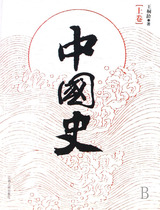 王桐齡◆著
【上卷】
中國史
B